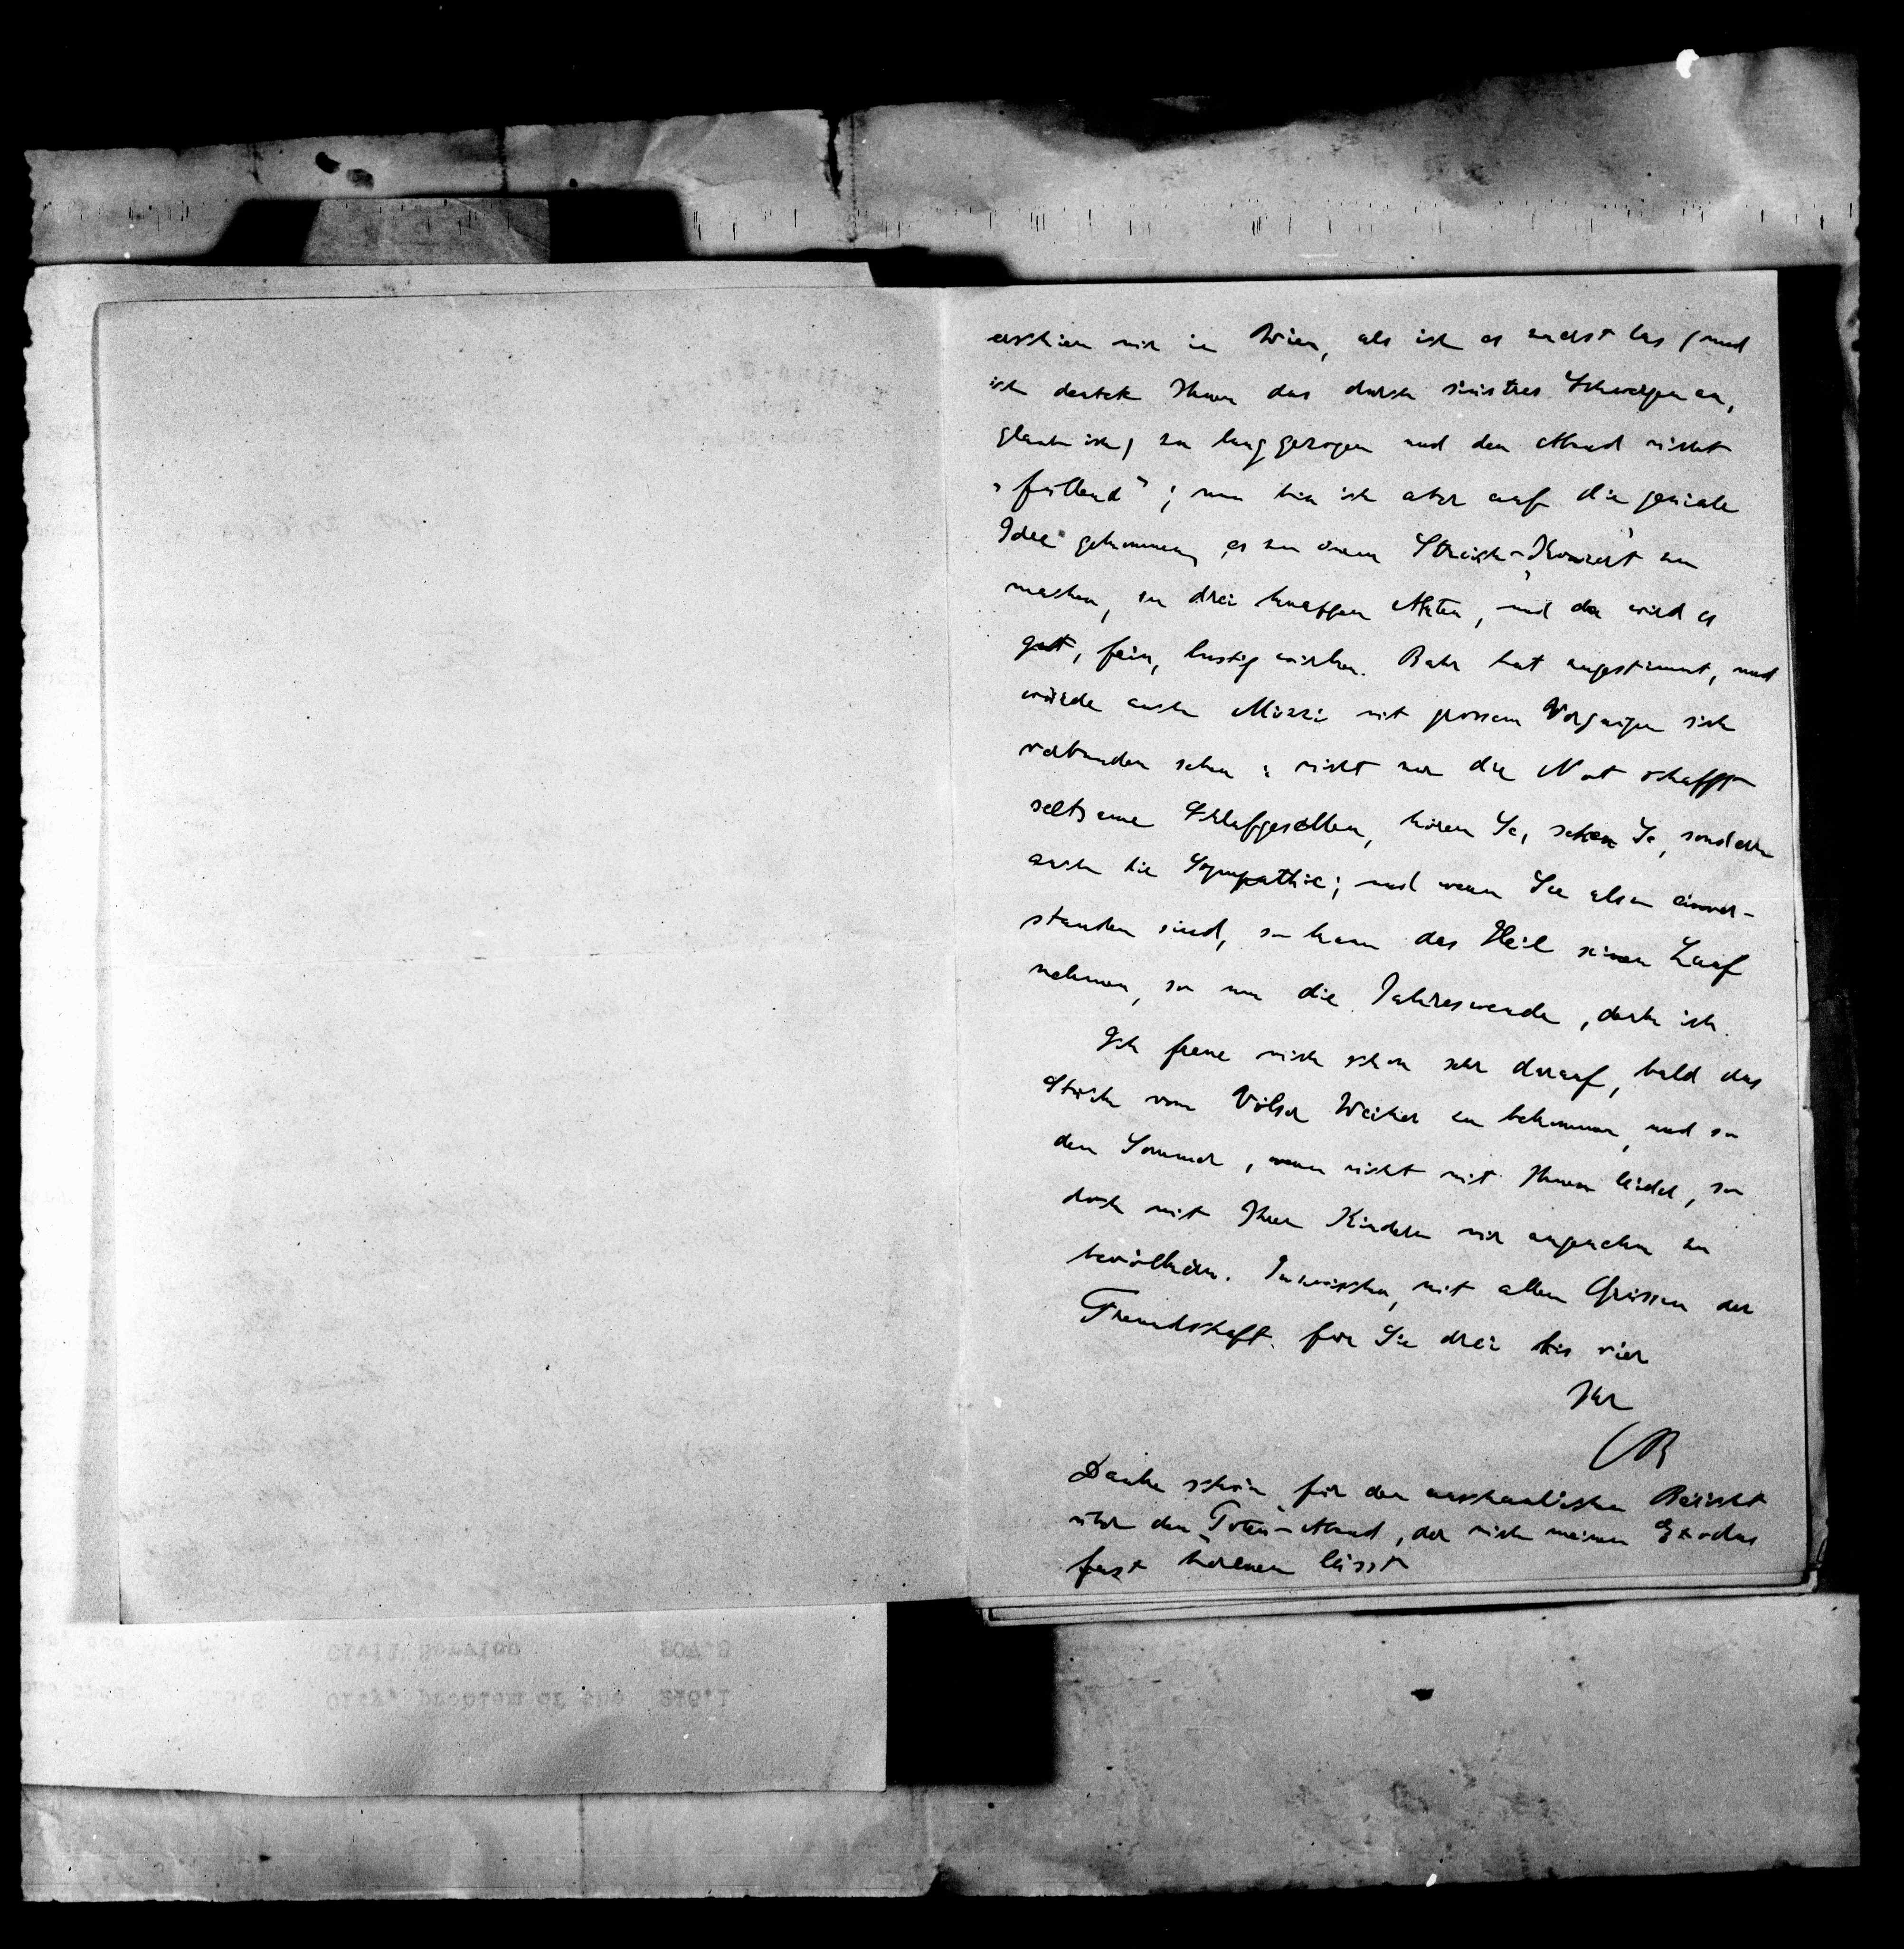 erschien mir in Wien, als ich es zuerst las (und
ich deutete Ihnen das durch sinistres Schweigen an,
glaub ich) zu langgezogen und den Abend nicht
„füllend"; nun bin ich aber auf die geniale
Idee gekommen, es zu einem „Strich-Konzert" zu
machen, zu drei knappen Akten, und da wird es
gut, fein, lustig wirken. Bahr hat zugestimmt, und
würde auch Mizzi mit grossem Vergnügen sich
verbunden sehen: nicht nur die Not schafft
seltsame Schlafgesellen, hören Se, sehen Se, sondern
auch die Sympathie; und wenn Sie also einver-
standen sind, so kann das Heil seinen Lauf
nehmen, so um die Jahreswende, denk ich.
Ich freue mich schon sehr darauf, bald das
Stück vom Völser Weiher zu bekommen, und so
den Sommer, wenn nicht mit Ihnen leider, so
doch mit Ihren Kindern mir angenehm zu
bevölkern. Inzwischen, mit allen Grüssen der
Freundschaft für Sie drei bis vier
Ihr
B
Danke schön für den anschaulichen Bericht
über den Toten-Abend, der mich meinen Exodus
fast bereuen lässt